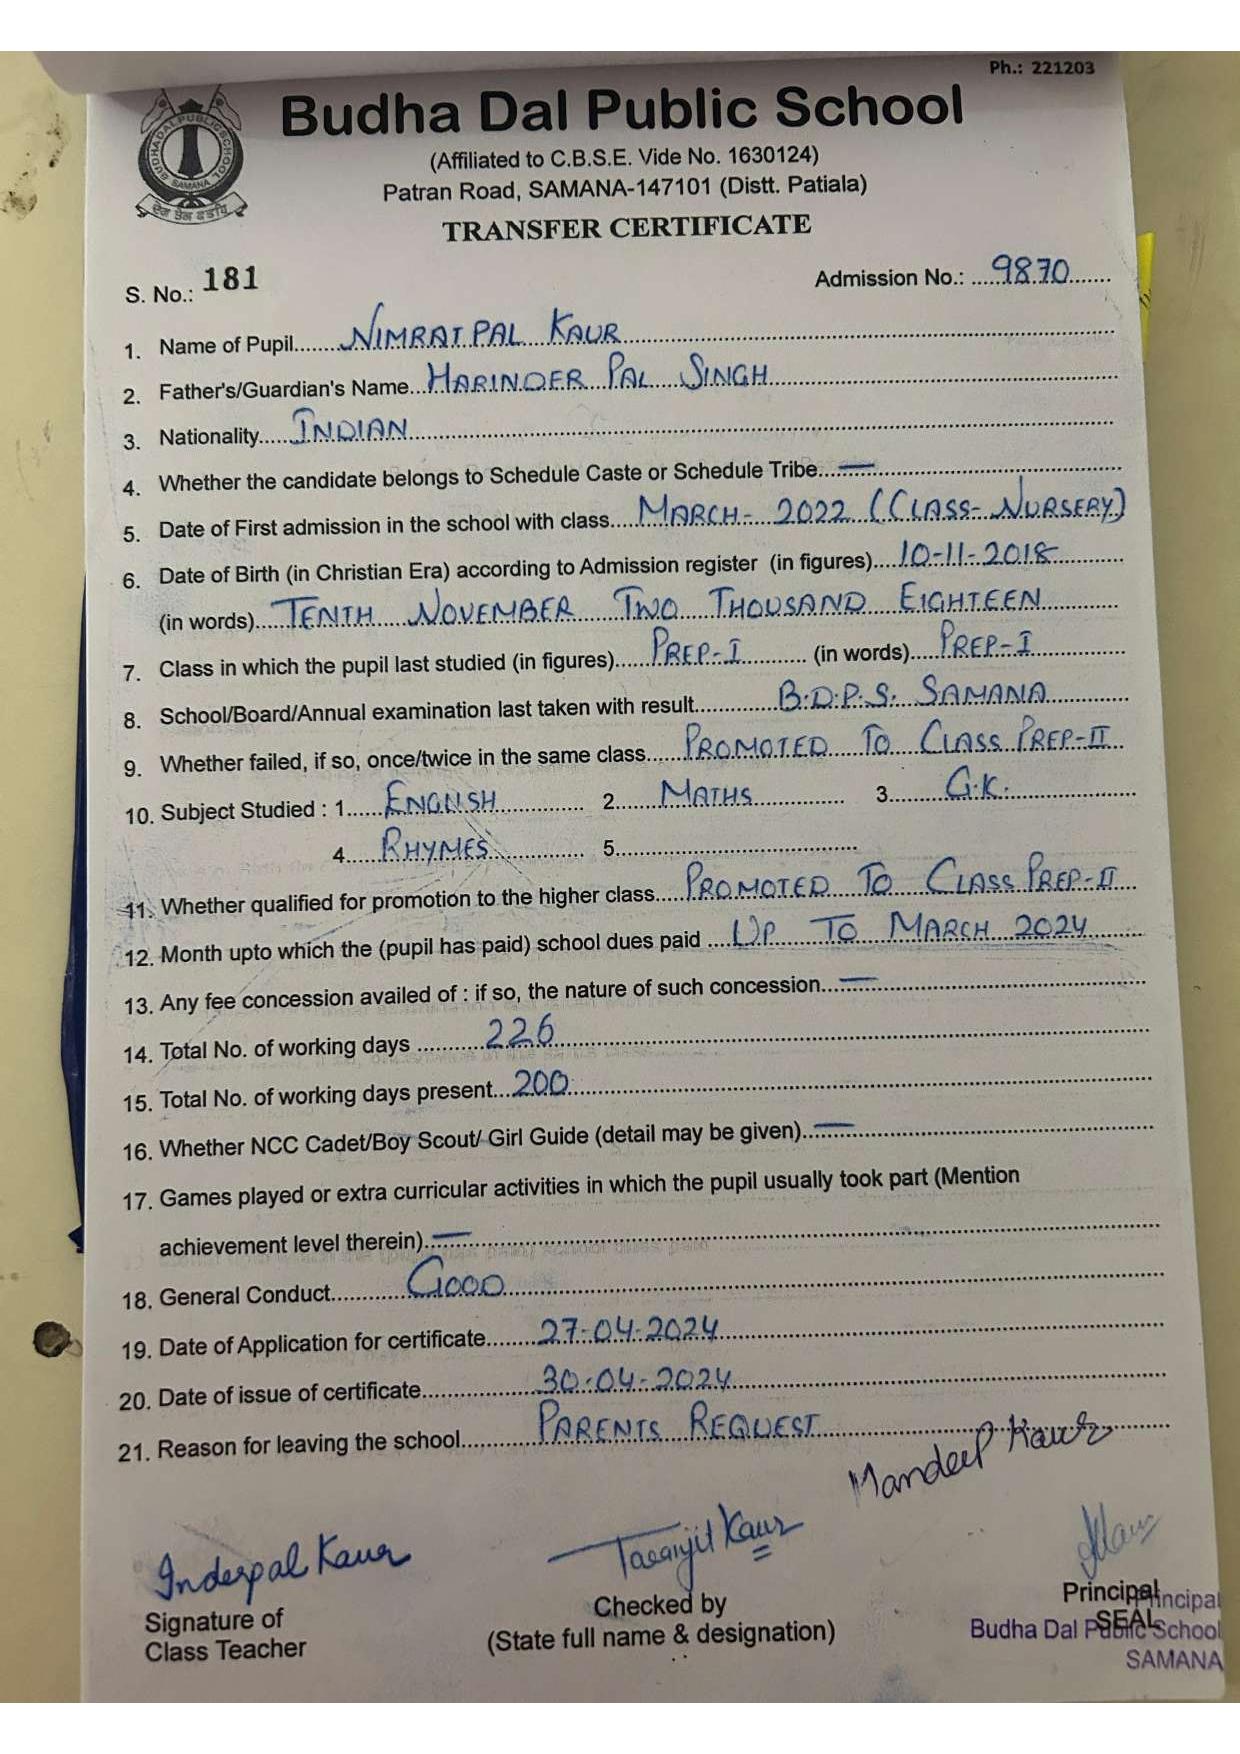 Ph.: 221203
BUDHA DAL PUBLIC SCHOOL
SAMANA
Budha Dal Public School
(Affiliated to C.B.S.E. Vide No. 1630124)
Patran Road, SAMANA-147101 (Distt. Patiala)
TRANSFER CERTIFICATE
S. No.: 181 Admission No.: 9870
1. Name of Pupil NIMRATPAL KAUR
2. Father's/Guardian's Name HARINDER PAL SINGH
3. Nationality INDIAN
4. Whether the candidate belongs to Schedule Caste or Schedule Tribe —
5. Date of First admission in the school with class MARCH- 2022 (CLASS- NURSERY)
6. Date of Birth (in Christian Era) according to Admission register (in figures) 10-11-2018
(in words) TENTH NOVEMBER TWO THOUSAND EIGHTEEN
7. Class in which the pupil last studied (in figures) PREP-I (in words) PREP-I
8. School/Board/Annual examination last taken with result B.D.P.S. SAMANA
9. Whether failed, if so, once/twice in the same class PROMOTED TO CLASS PREP-II
10. Subject Studied : 1 ENGLISH 2 MATHS 3 G.K.
4 RHYMES 5
11. Whether qualified for promotion to the higher class PROMOTED TO CLASS PREP-II
12. Month upto which the (pupil has paid) school dues paid UP TO MARCH 2024
13. Any fee concession availed of : if so, the nature of such concession —
14. Total No. of working days 226
15. Total No. of working days present 200
16. Whether NCC Cadet/Boy Scout/ Girl Guide (detail may be given) —
17. Games played or extra curricular activities in which the pupil usually took part (Mention
achievement level therein) —
18. General Conduct GOOD
19. Date of Application for certificate 27-04-2024
20. Date of issue of certificate 30-04-2024
21. Reason for leaving the school PARENTS REQUEST
Mandeep Kaur
Inderpal Kaur Taranjit Kaur
Signature of
Class Teacher
Checked by
(State full name & designation)
Principal
SEAL
Principal
Budha Dal Public School
SAMANA